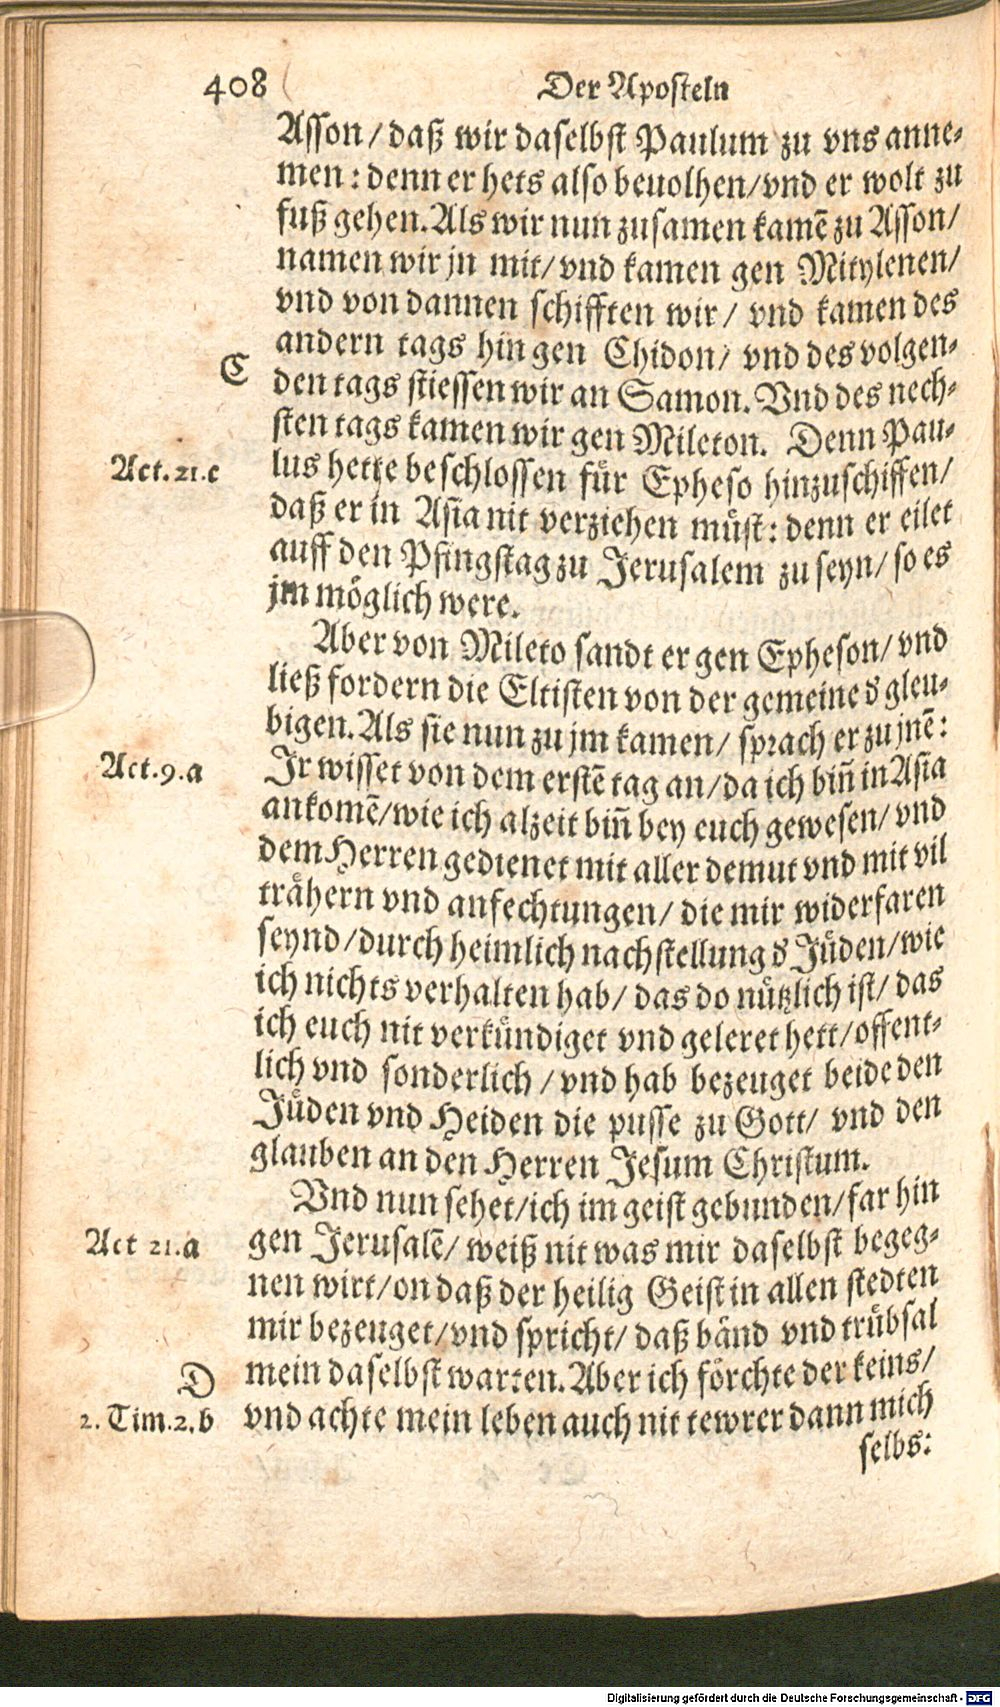 408
Der Aposteln
Asson / daß wir daselbst Paulum zu vns anne⸗
men : denn er hets also beuolhen / vnd er wolt zu
fuß gehen. Als wir nun zusamen kamē zu Asson /
namen wir jn mit / vnd kamen gen Mitylenen /
vnd von dannen schifften wir / vnd kamen des
andern tags hin gen Chidon / vnd des volgen⸗
C
den tags stiessen wir an Samon. Vnd des nech⸗
sten tags kamen wir gen Mileton. Denn Pau⸗
Act. 21. c
lus hette beschlossen für Epheso hinzuschiffen /
daß er in Asia nit verziehen müst : denn er eilet
auff den Pfingstag zu Jerusalem zu seyn / so es
jm möglich were.
Aber von Mileto sandt er gen Epheson / vnd
ließ fordern die Eltisten von der gemeine d gleu⸗
bigen. Als sie nun zu jm kamen / sprach er zu jnē :
Act. 9. a
Jr wisset von dem erstē tag an / da ich biñ in Asia
ankomē / wie ich alzeit biñ bey euch gewesen / vnd
dem Herren gedienet mit aller demut vnd mit vil
trähern vnd anfechtungen / die mir widerfaren
seynd / durch heimlich nachstellung d Jüden / wie
ich nichts verhalten hab / das do nützlich ist / das
ich euch nit verkündiget vnd geleret hett / offent⸗
lich vnd sonderlich / vnd hab bezeuget beide den
Jüden vnd Heiden die pusse zu Gott / vnd den
glauben an den Herren Jesum Christum.
Vnd nun sehet / ich im geist gebunden / far hin
Act 21. a
gen Jerusalē / weiß nit was mir daselbst begeg⸗
nen wirt / on daß der heilig Geist in allen stedten
mir bezeuget / vnd spricht / daß bänd vnd trübsal
D
mein daselbst warten. Aber ich förchte der keins /
2. Tim. 2. b
vnd achte mein leben auch nit tewrer dann mich
selbs :
Digitalisierung gefördert durch die Deutsche Forschungsgemeinschaft - DFG